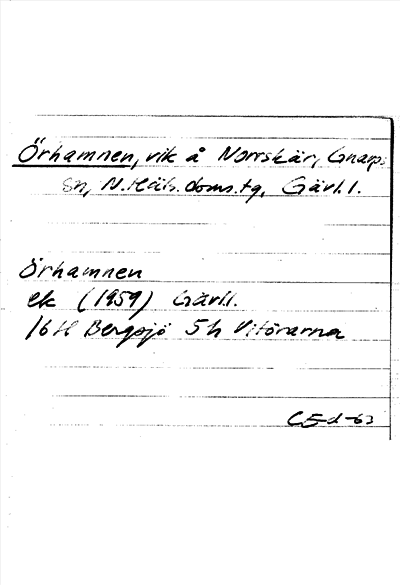 Örhamnen, vik å Norrskär, Gnarps
sn, N. Häls. doms. tg, Gävl. l.
Örhamnen
ek (1959) Gävl.l.
16 H Bergsjö 5 h Vitörarna
CEd-63